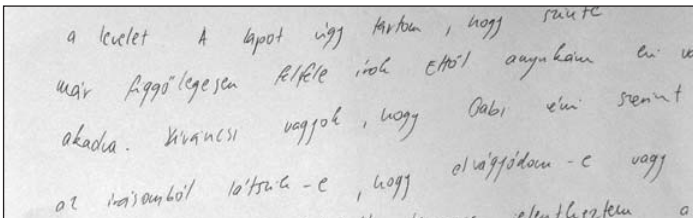 a levelet A lapot úgy tartom, hogy szinte
már függőlegesen felfele írok Ettől anyukám ki v
akadva. Kíváncsi vagyok, hogy Gabi néni szerint
az írásomból látszik-e, hogy elvágyódom-e vagy
elentkeztem a